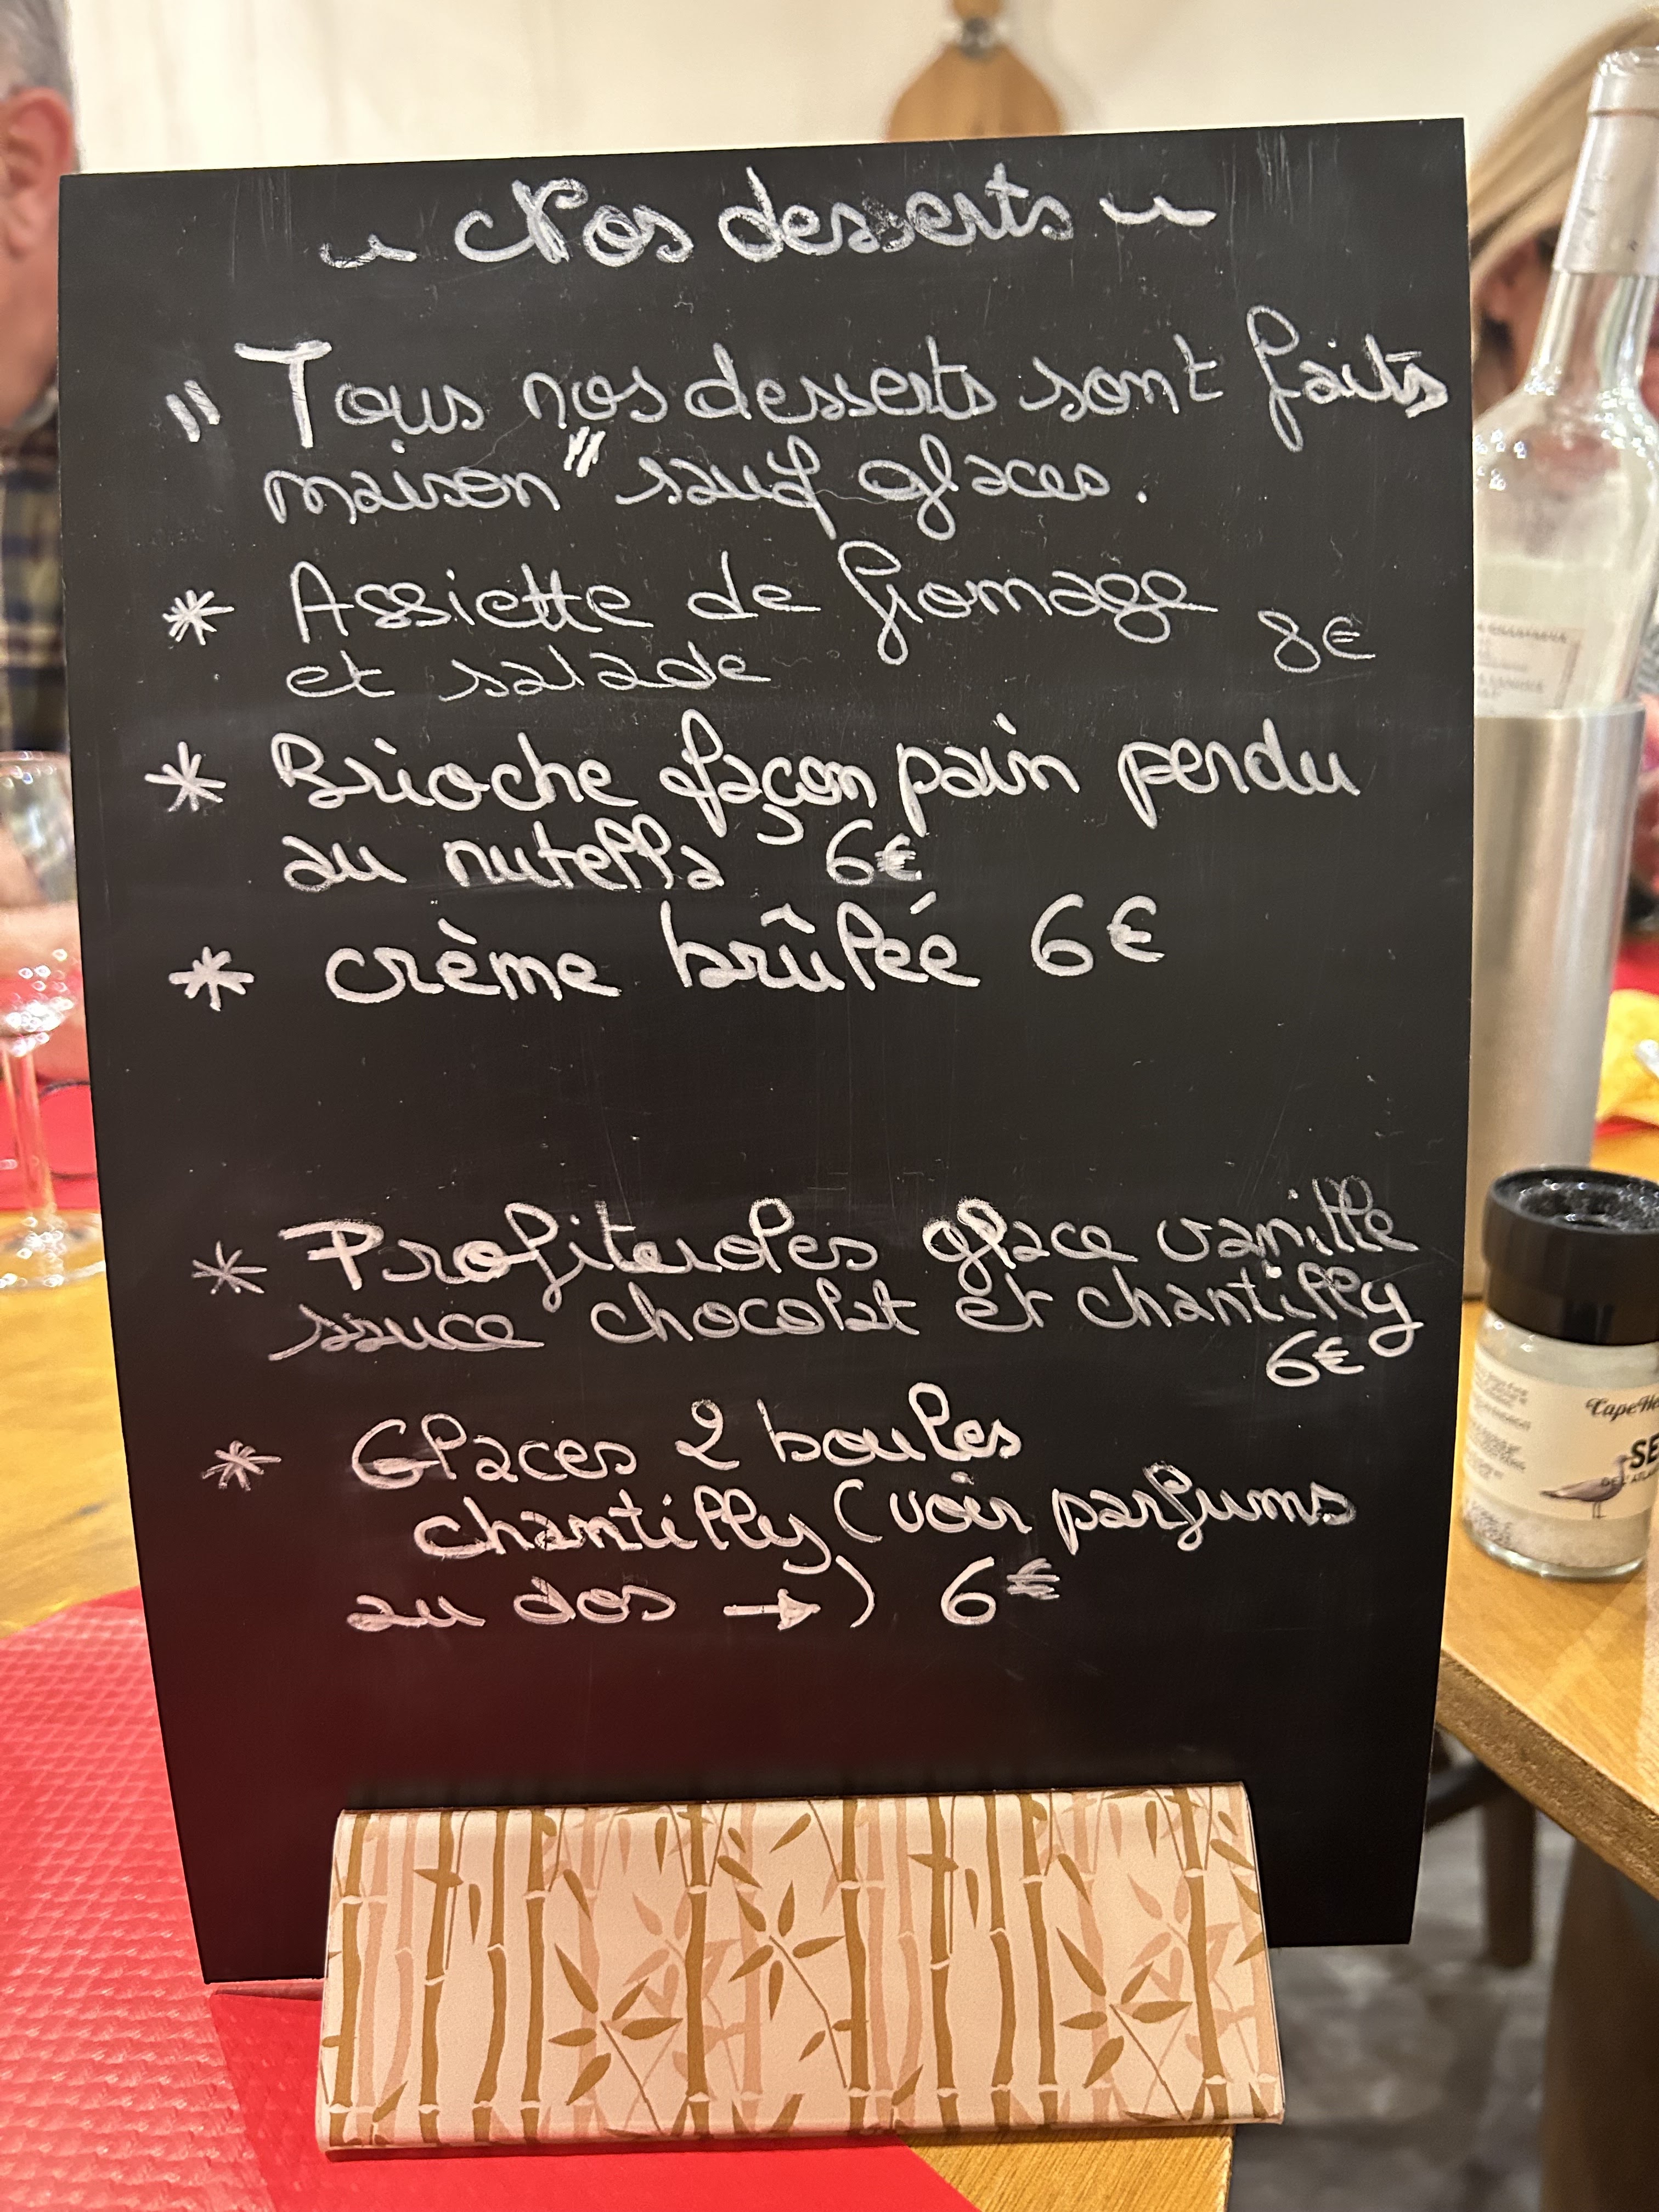 ~ Nos desserts ~
" Tous nos desserts sont faits
maison" sauf glaces.
* Assiette de fromage
et salade 8€
* Brioche façon pain perdu
au nutella 6€
* crème brûlée 6€
* Profiteroles glace vanille
sauce chocolat et chantilly
6€
* Glaces 2 boules
chantilly (voir parfums
au dos →) 6€
SE